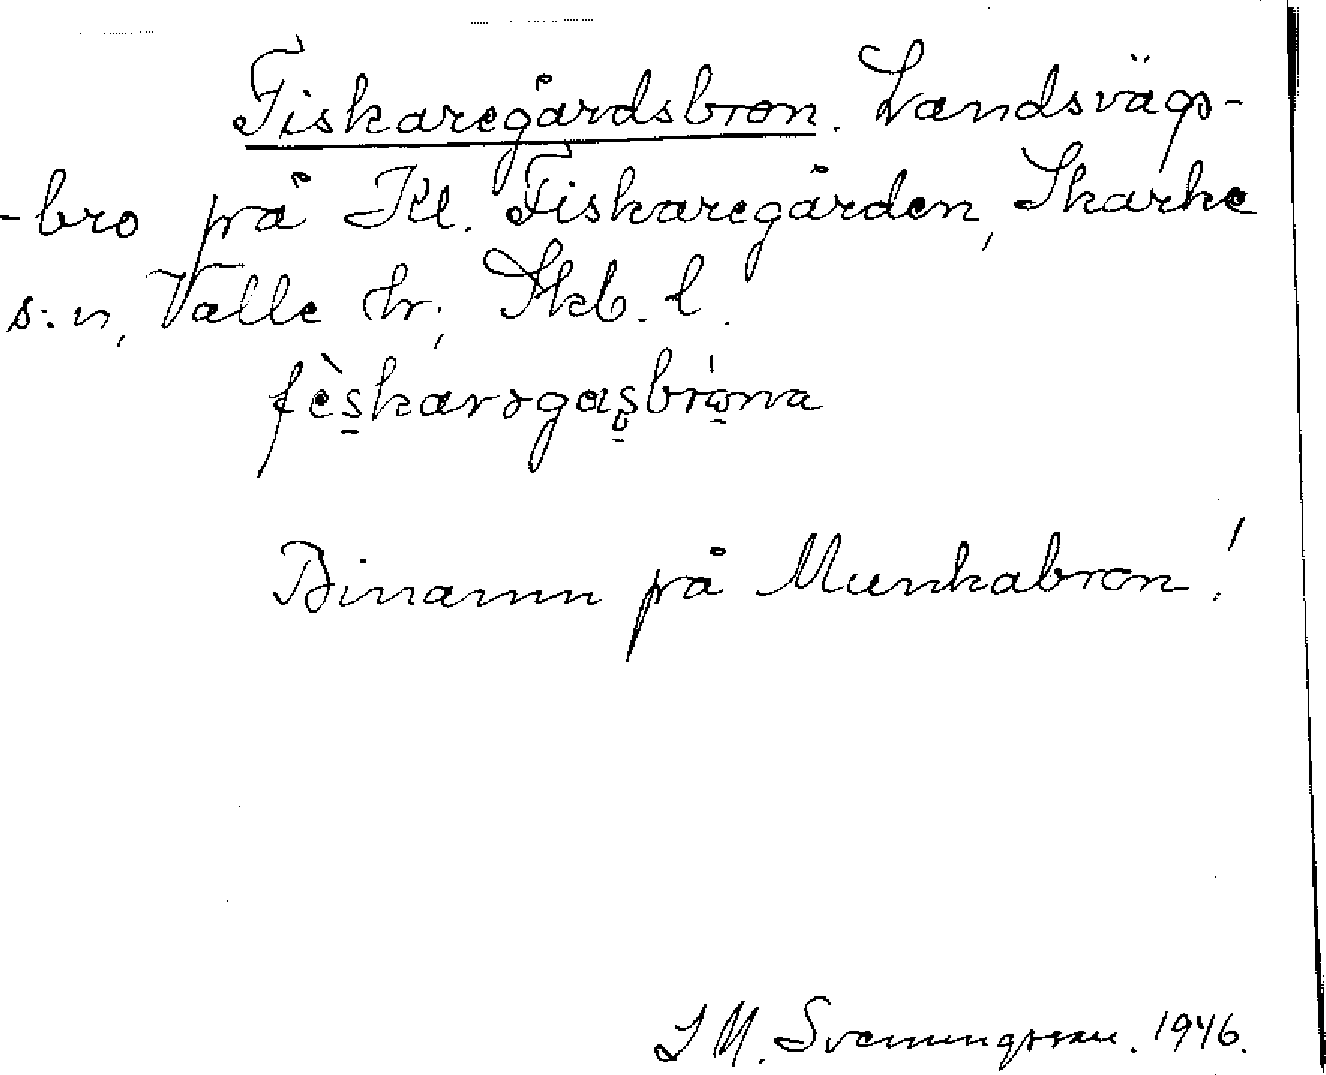 Fiskaregårdsbron. Landsvägs-
-bro på Kl. Fiskaregården, Skarke
s:n, Valle hr, Skb. l.
fèskarəgasbróna
Binamn på Munkabron!
S M. Svenungsson. 1946.